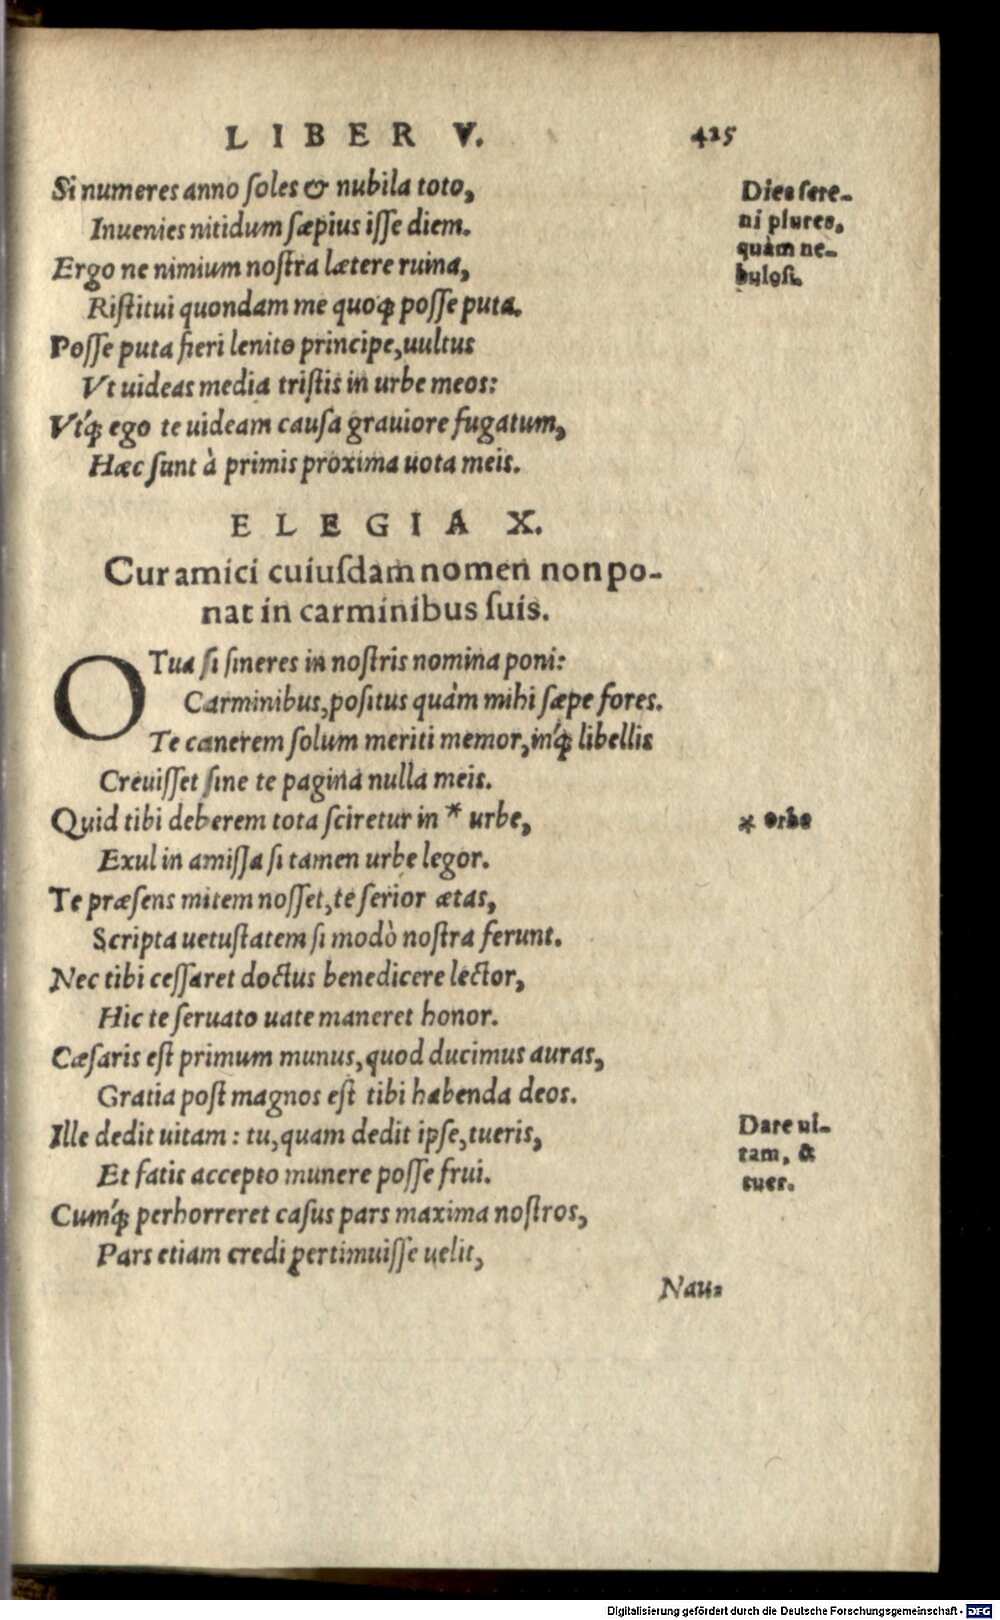 LIBER V. 425
Si numeres anno ſoles & nubila toto,
Inuenies nitidum ſæpius iſſe diem.
Ergo ne nimium noſtra lætere ruina,
Riſtitui quondam me quoq; poſſe puta.
Poſſe puta fieri lenito principe, uultus
Vt uideas media triſtis in urbe meos:
Vtq́; ego te uideam cauſa grauiore fugatum,
Hæc ſunt à primis proxima uota meis.
Dies ſere-
ni plures,
quàm ne-
buloſi.
ELEGIA X.
Cur amici cuiuſdam nomen non po-
nat in carminibus ſuis.
O Tua ſi ſineres in noſtris nomina poni:
Carminibus, poſitus quàm mihi ſæpe fores.
Te canerem ſolum meriti memor, inq́; libellis
Creuiſſet ſine te pagina nulla meis.
Quid tibi deberem tota ſciretur in * urbe,
Exul in amiſſa ſi tamen urbe legor.
Te præſens mitem noſſet, te ſerior ætas,
Scripta uetuſtatem ſi modò noſtra ferunt.
Nec tibi ceſſaret doctus benedicere lector,
Hic te ſeruato uate maneret honor.
Cæſaris eſt primum munus, quod ducimus auras,
Gratia poſt magnos eſt tibi habenda deos.
Ille dedit uitam: tu, quam dedit ipſe, tueris,
Et facis accepto munere poſſe frui.
Cumq́; perhorreret caſus pars maxima noſtros,
Pars etiam credi pertimuiſſe uelit,
* orbe
Dare ui-
tam, &
tuer.
Nau-
Digitalisierung gefördert durch die Deutsche Forschungsgemeinschaft - DFG